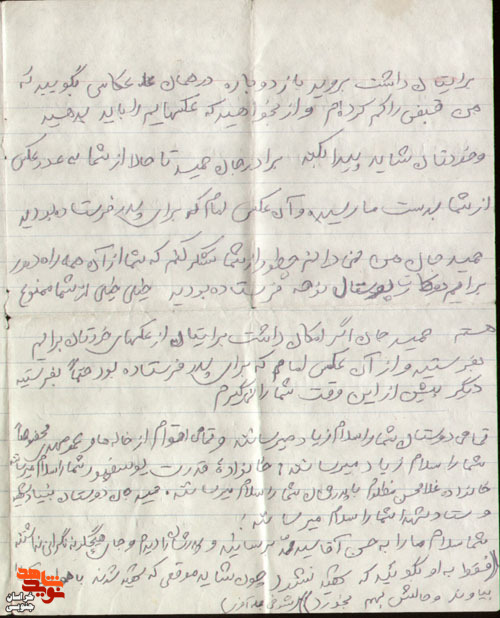 برایتان داشت بروید باز دوباره در همان عکاسی بگویید که
من قبضی را گم کرده‌ام و از بخواهید که عکسهایم را باید بدهید
و خودتان شاید پیدا بکند برادر جان حمید تا حالا از شما به عدد عکس
از شما بدست ما رسیده و آن عکس امام که برای پدر فرستاده بودید
حمید جان من نمی‌دانم چطور از شما تشکر کنم که شما از آن همه راه دور
برایم کارت پوستال فرستاده بودید خیلی خیلی از شما ممنوع
هستم حمید جان اگر امکان داشت برایتان از عکسهای خودتان برایم
بفرستید و از آن عکس امام که برای پدر فرستاده بود حتماً بفرستید
دیگر بیش از این وقت شما را نمی‌گیرم
تمامی دوستان شما را سلام زیاد میرسانند و تمامی اقوام از خاله ها و عمو مخصوصاً
شما را سلام زیاد میرسانند خانواده قدرت شما را سلام میرساند
خانواده غلامحسین مظلوم شما را سلام میرسانند حمید جان دوستان بنیاد شهید
و ستاد شهدا شما را سلام میرسانند
شما سلام ما را به حسن آقا سید برسانید و و جای هیچگونه نگرانی نداشته
(فقط به او نگویید که شهید نشد) چون شاید موقعی که شهید شدند
بیاورند و حالش بهم بخورد)
شاهد
نوید
خراسان
جنوبی